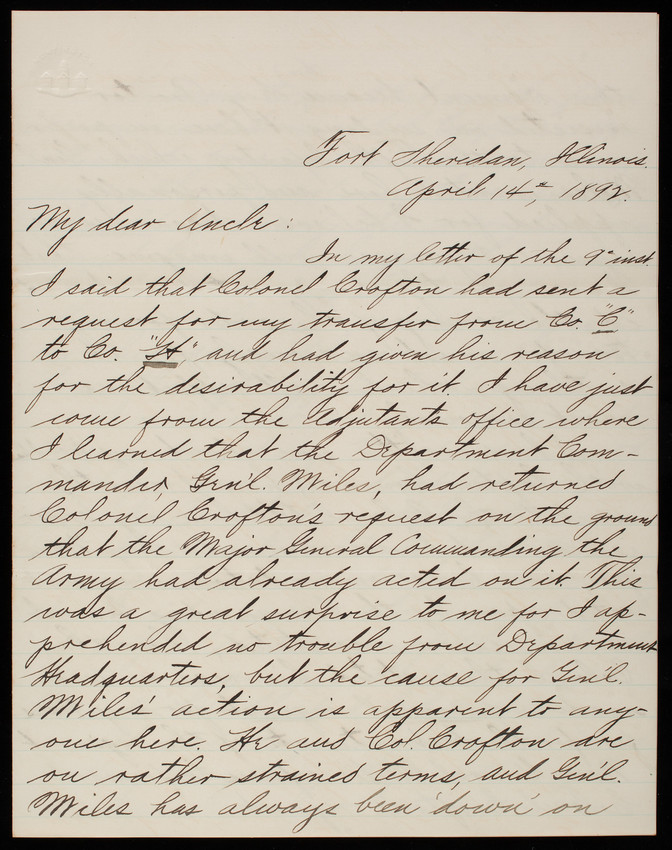 Fort Sheridan, Illinois.
April 14th, 1892.
My dear Uncle:
In my letter of the 9" inst.
I said that Colonel Crofton had sent a
request for my transfer from Co. "C"
to Co. "H" and had given his reason
for the desirability for it. I have just
come from the Adjutant's office where
I learned that the Department Com-
mander, Gen'l. Miles, had returned
Colonel Crofton's request on the ground
that the Major General Commanding the
Army had already acted on it. This
was a great surprise to me for I ap-
prehended no trouble from Department
Headquarters, but the cause for Gen'l.
Miles' action is apparent to any-
one here. He and Col. Crofton are
on rather strained terms, and Gen'l.
Miles has always been 'down' on